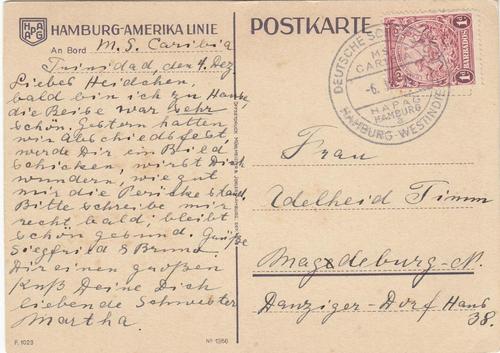 HAPAG
HAMBURG-AMERIKA LINIE
An Bord M.S. Caribia
Trinidad, den 4. Dez.
Liebes Heidchen,
bald bin ich zu Hause
die Reise war sehr
schön. Gestern hatten
wir Abschiedsfest
werde Dir ein Bild
schicken, wirst Dich
wundern, wie gut
mir die Perücke stand.
Bitte schreibe mir
recht bald, bleibt
schön gesund. Grüße
Siegfried & Bruno.
Dir einen großen
Kuß Deine Dich
liebende Schwester
Martha.
F. 1023
Nº 1356
POSTKARTE
DEUTSCHE
M.S.
CARIBIA
-6.
HAPAG
HAMBURG
HAMBURG-WESTINDIEN
1d
1d
BARBADOS
Frau
Adelheid Timm
Magdeburg-N.
Danziger-Dorf Haus
38.